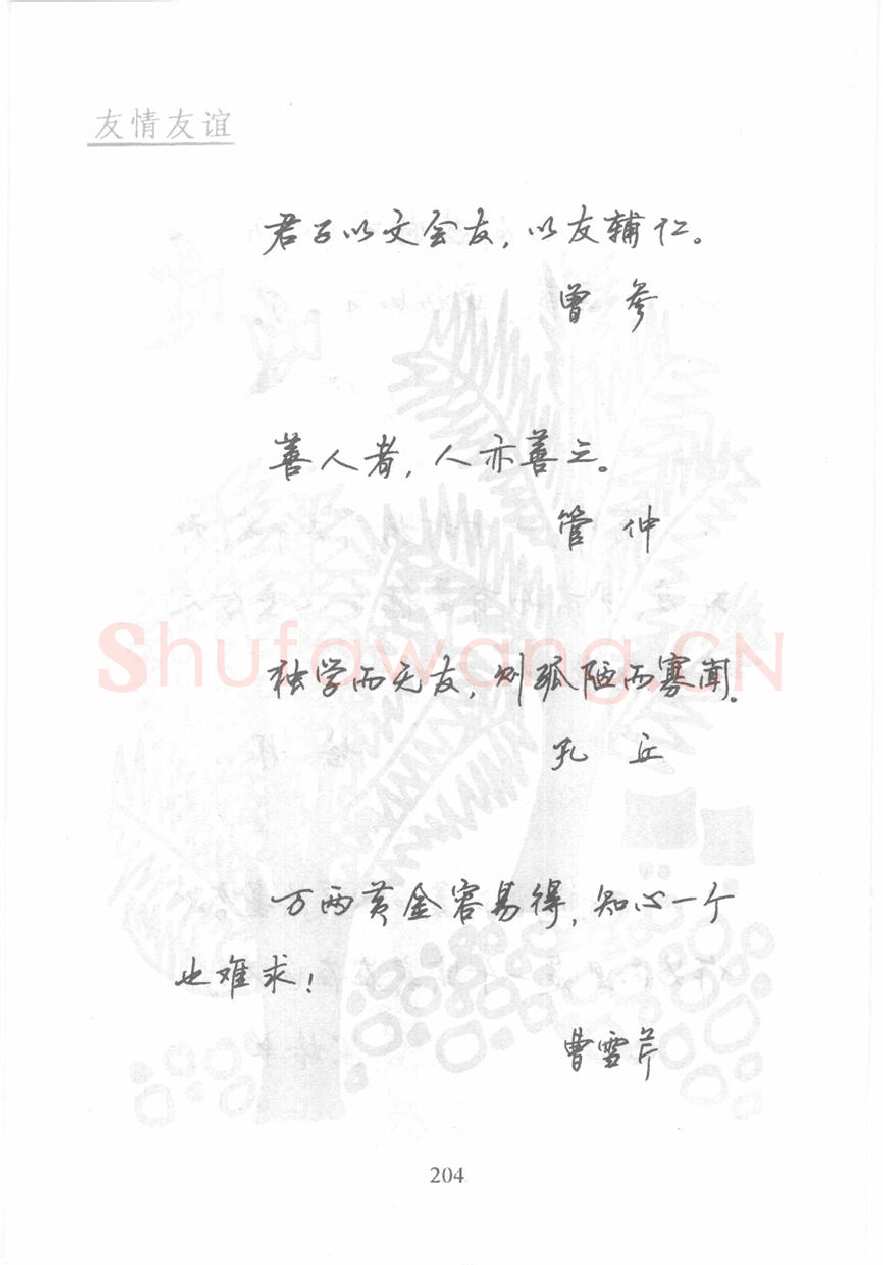 友情友谊
君子以文会友，以友辅仁。
曾参
善人者，人亦善之。
管仲
Shufawang.CN
独学而无友，则孤陋而寡闻。
孔丘
万两黄金容易得，知心一个
也难求！
曹雪芹
204